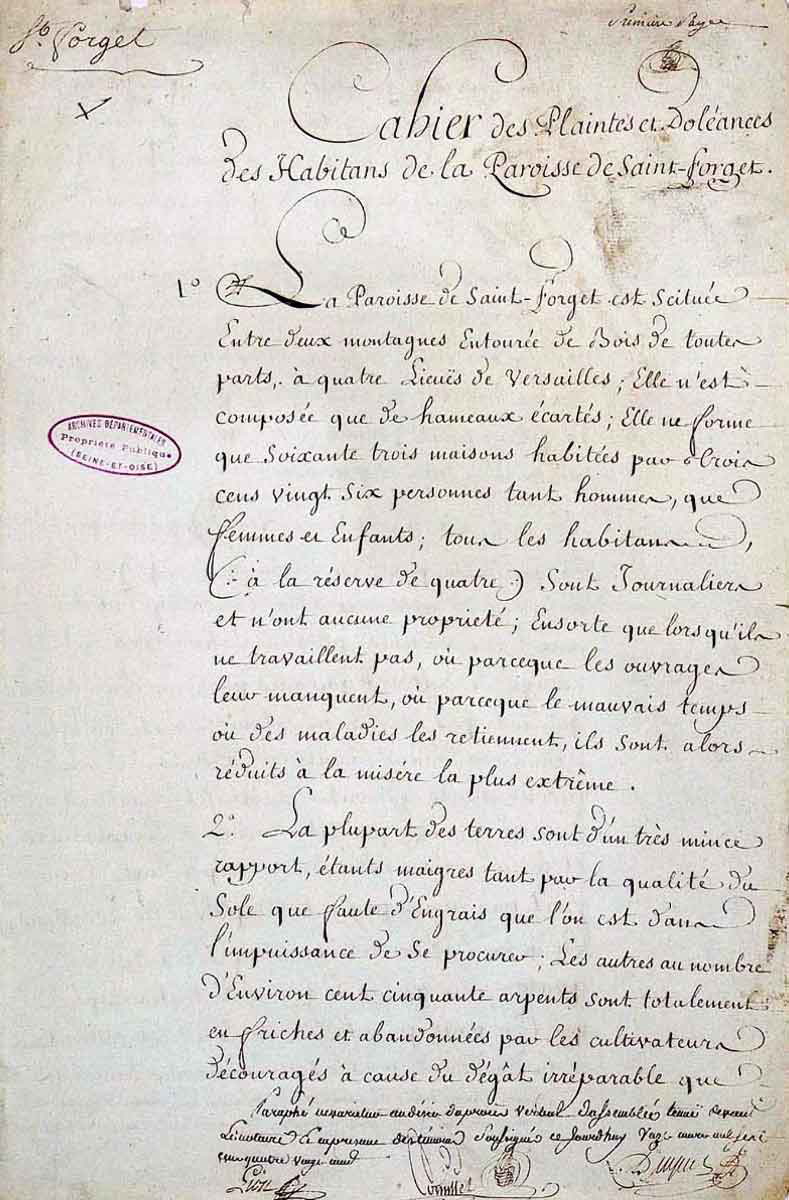 St. Forget
Premiere Page
Cahier des Plaintes et Doléances
des Habitans de la Paroisse de Saint-Forget.
1º La Paroisse de Saint-Forget est scituée
Entre deux montagnes Entourée de Bois de toutes
parts, à quatre Lieuës de Versailles; Elle n'est
composée que de hameaux écartés; Elle ne forme
que Soixante trois maisons habitées par trois
cens vingt Six personnes tant hommes, que
femmes et Enfants; tous les habitans,
(à la réserve de quatre) Sont Journaliers
et n'ont aucune proprieté; Ensorte que lorsqu'ils
ne travaillent pas, où parceque les ouvrages
leur manquent, où parceque le mauvais temps
où des maladies les retiennent, ils sont alors
réduits à la misére la plus extrême.
ARCHIVES DÉPARTEMENTALES
Propriété Publique
(SEINE-ET-OISE)
2º. La plupart des terres sont d'un très mince
rapport, étants maigres tant par la qualité du
Sole que faute d'Engrais que l'on est dans
l'impuissance de se procurer; Les autres au nombre
d'Environ cent cinquante arpents sont totalement
en friches et abandonnées par les cultivateurs
découragés à cause du dégât irréparable que
Paraphé ne varietur au désir du procès verbal d'assemblée tenüe devant
Le notaire soussigné ce Jourdhuy
quatre vingt neuf